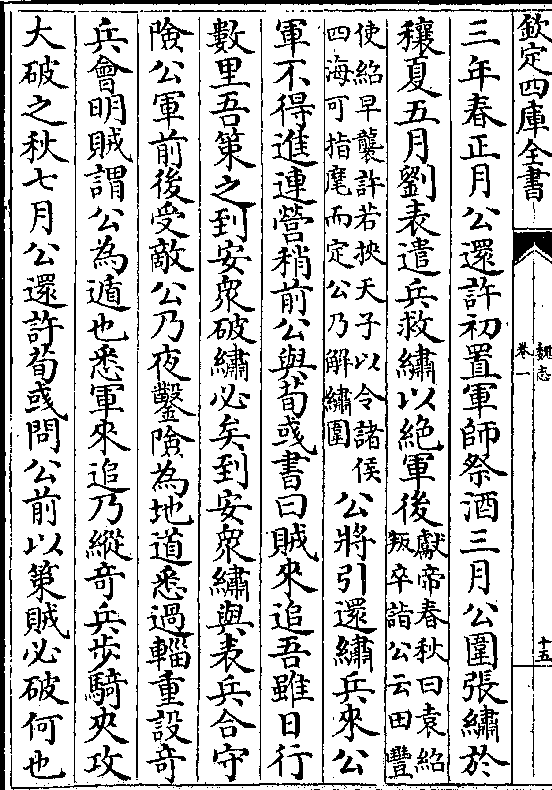 欽定四庫全書
魏志
卷一
十五
三年春正月公還許初置軍師祭酒三月公圍張繡於
穰夏五月劉表遣兵救繡以絶軍後
獻帝春秋曰袁紹
叛卒詣公云田豐
使紹早襲許若挾天子以令諸侯
四海可指麾而定公乃解繡圍
公將引還繡兵來公
軍不得進連營稍前公與荀彧書曰賊來追吾雖日行
數里吾策之到安衆破繡必矣到安衆繡與表兵合守
險公軍前後受敵公乃夜鑿險為地道悉過輜重設竒
兵會明賊謂公為遁也悉軍來追乃縱竒兵步騎夾攻
大破之秋七月公還許荀彧問公前以策賊必破何也